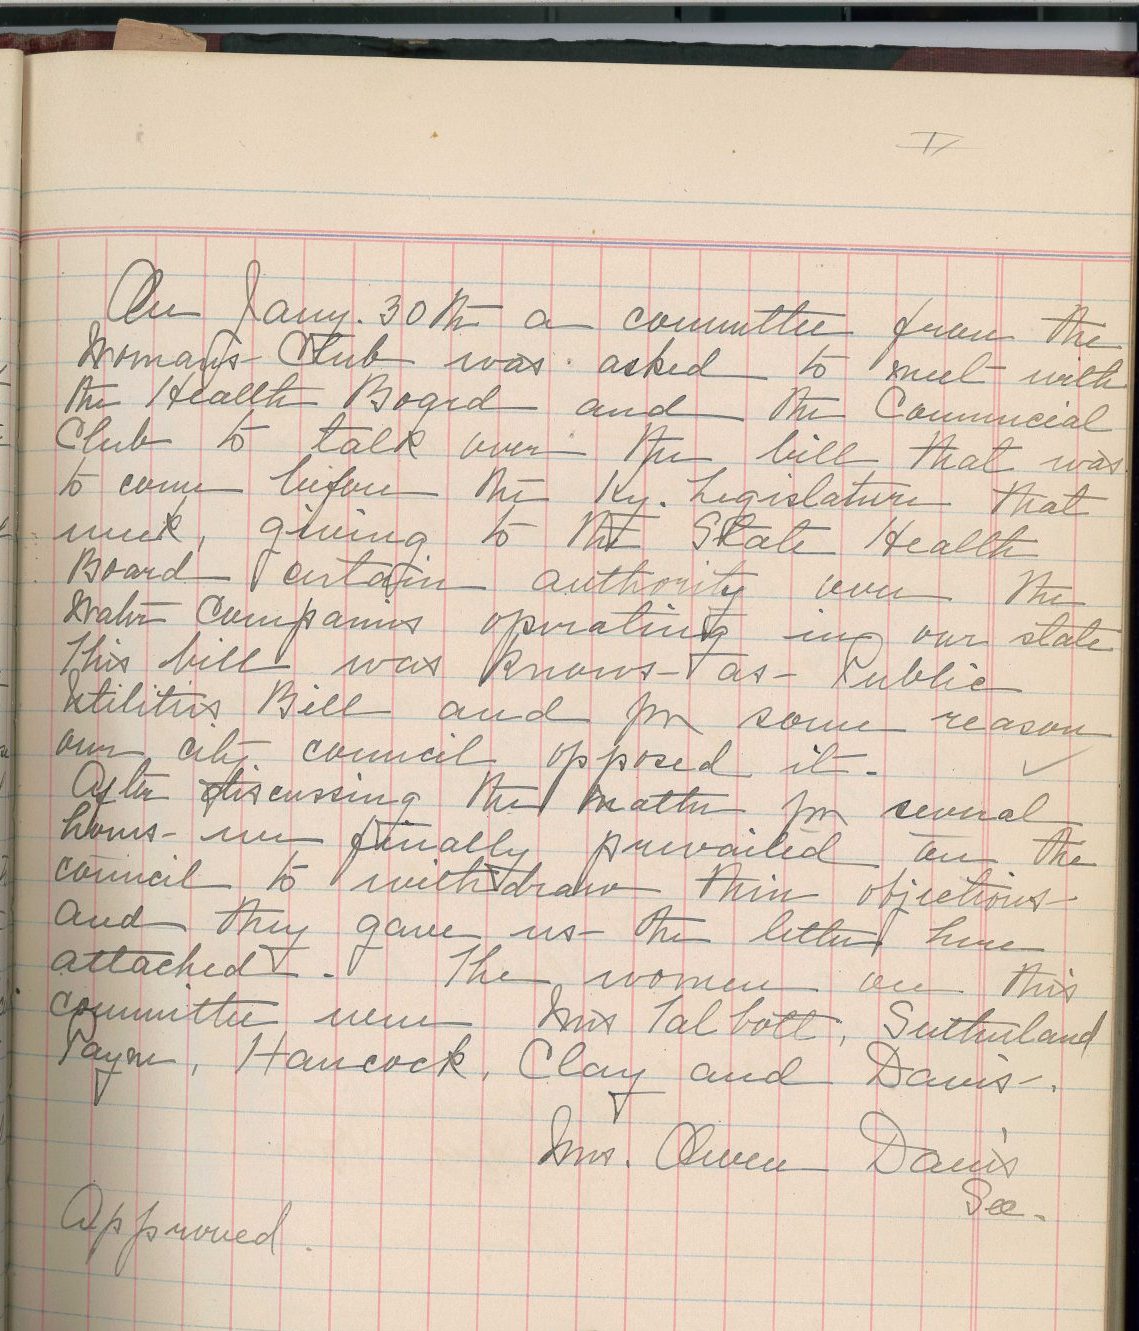 On Jany. 30th a committee from the
Woman's Club was asked to meet with
the Health Board and the Commercial
Club to talk over the bill that was
to come before the Ky. Legislature that
week, giving to the State Health
Board certain authority over the
Water Companies operating in our state
This bill was known as Public
Utilities Bill and for some reason
our city council opposed it.
After discussing the matter for several
hours - we finally prevailed on the
council to withdraw their objections -
and they gave us the letter here
attached. The women on this
committee were Mrs Talbott, Sutherland
Payne, Hancock, Clay and Davis.
Mrs. Owen Davis
Sec.
Approved.